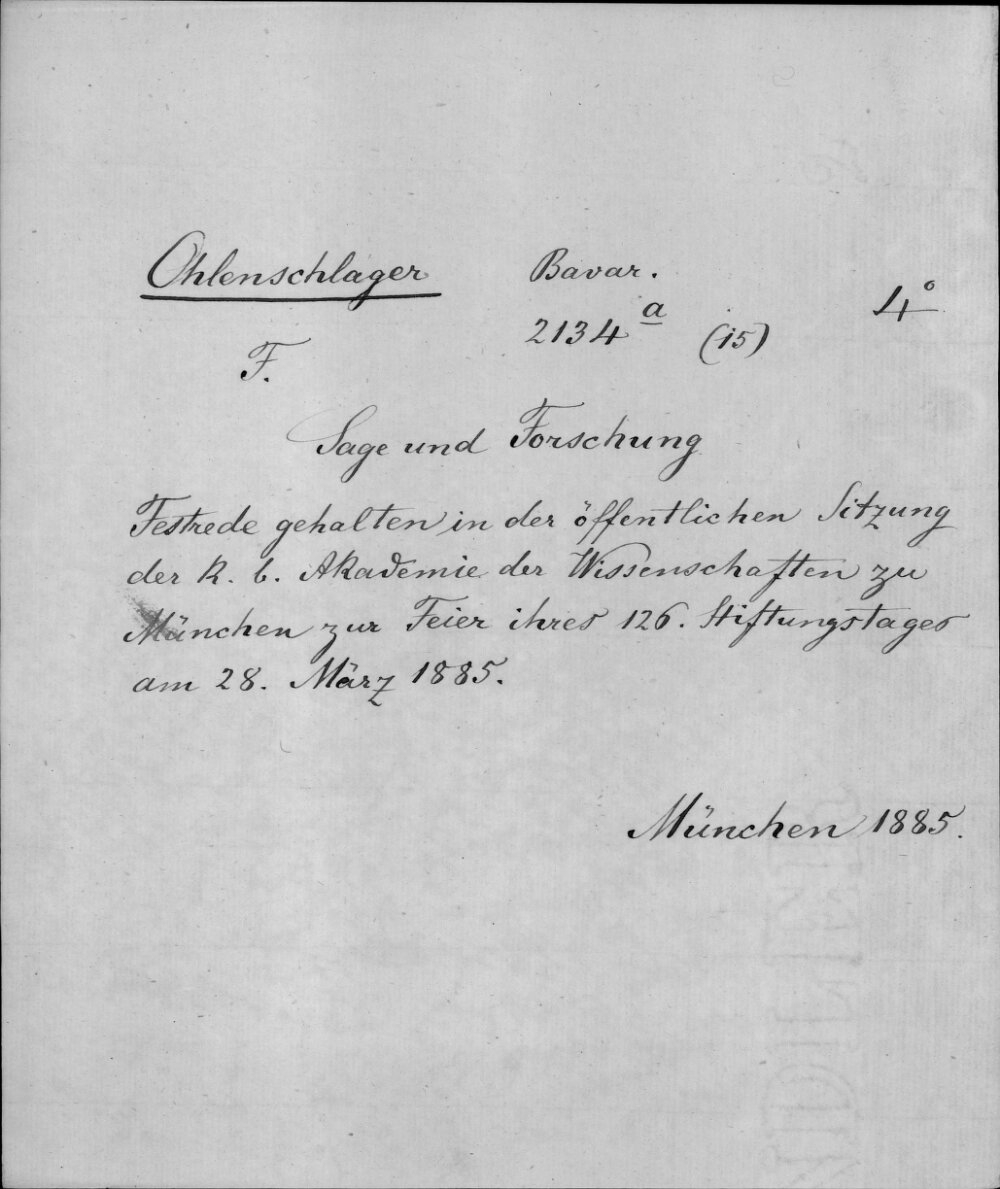 Ohlenschlager Bavar. 4°
2134 a (15)
F.
Sage und Forschung
Festrede gehalten in der öffentlichen Sitzung
der k. b. Akademie der Wissenschaften zu
München zur Feier ihres 126. Stiftungstages
am 28. März 1885.
München 1885.